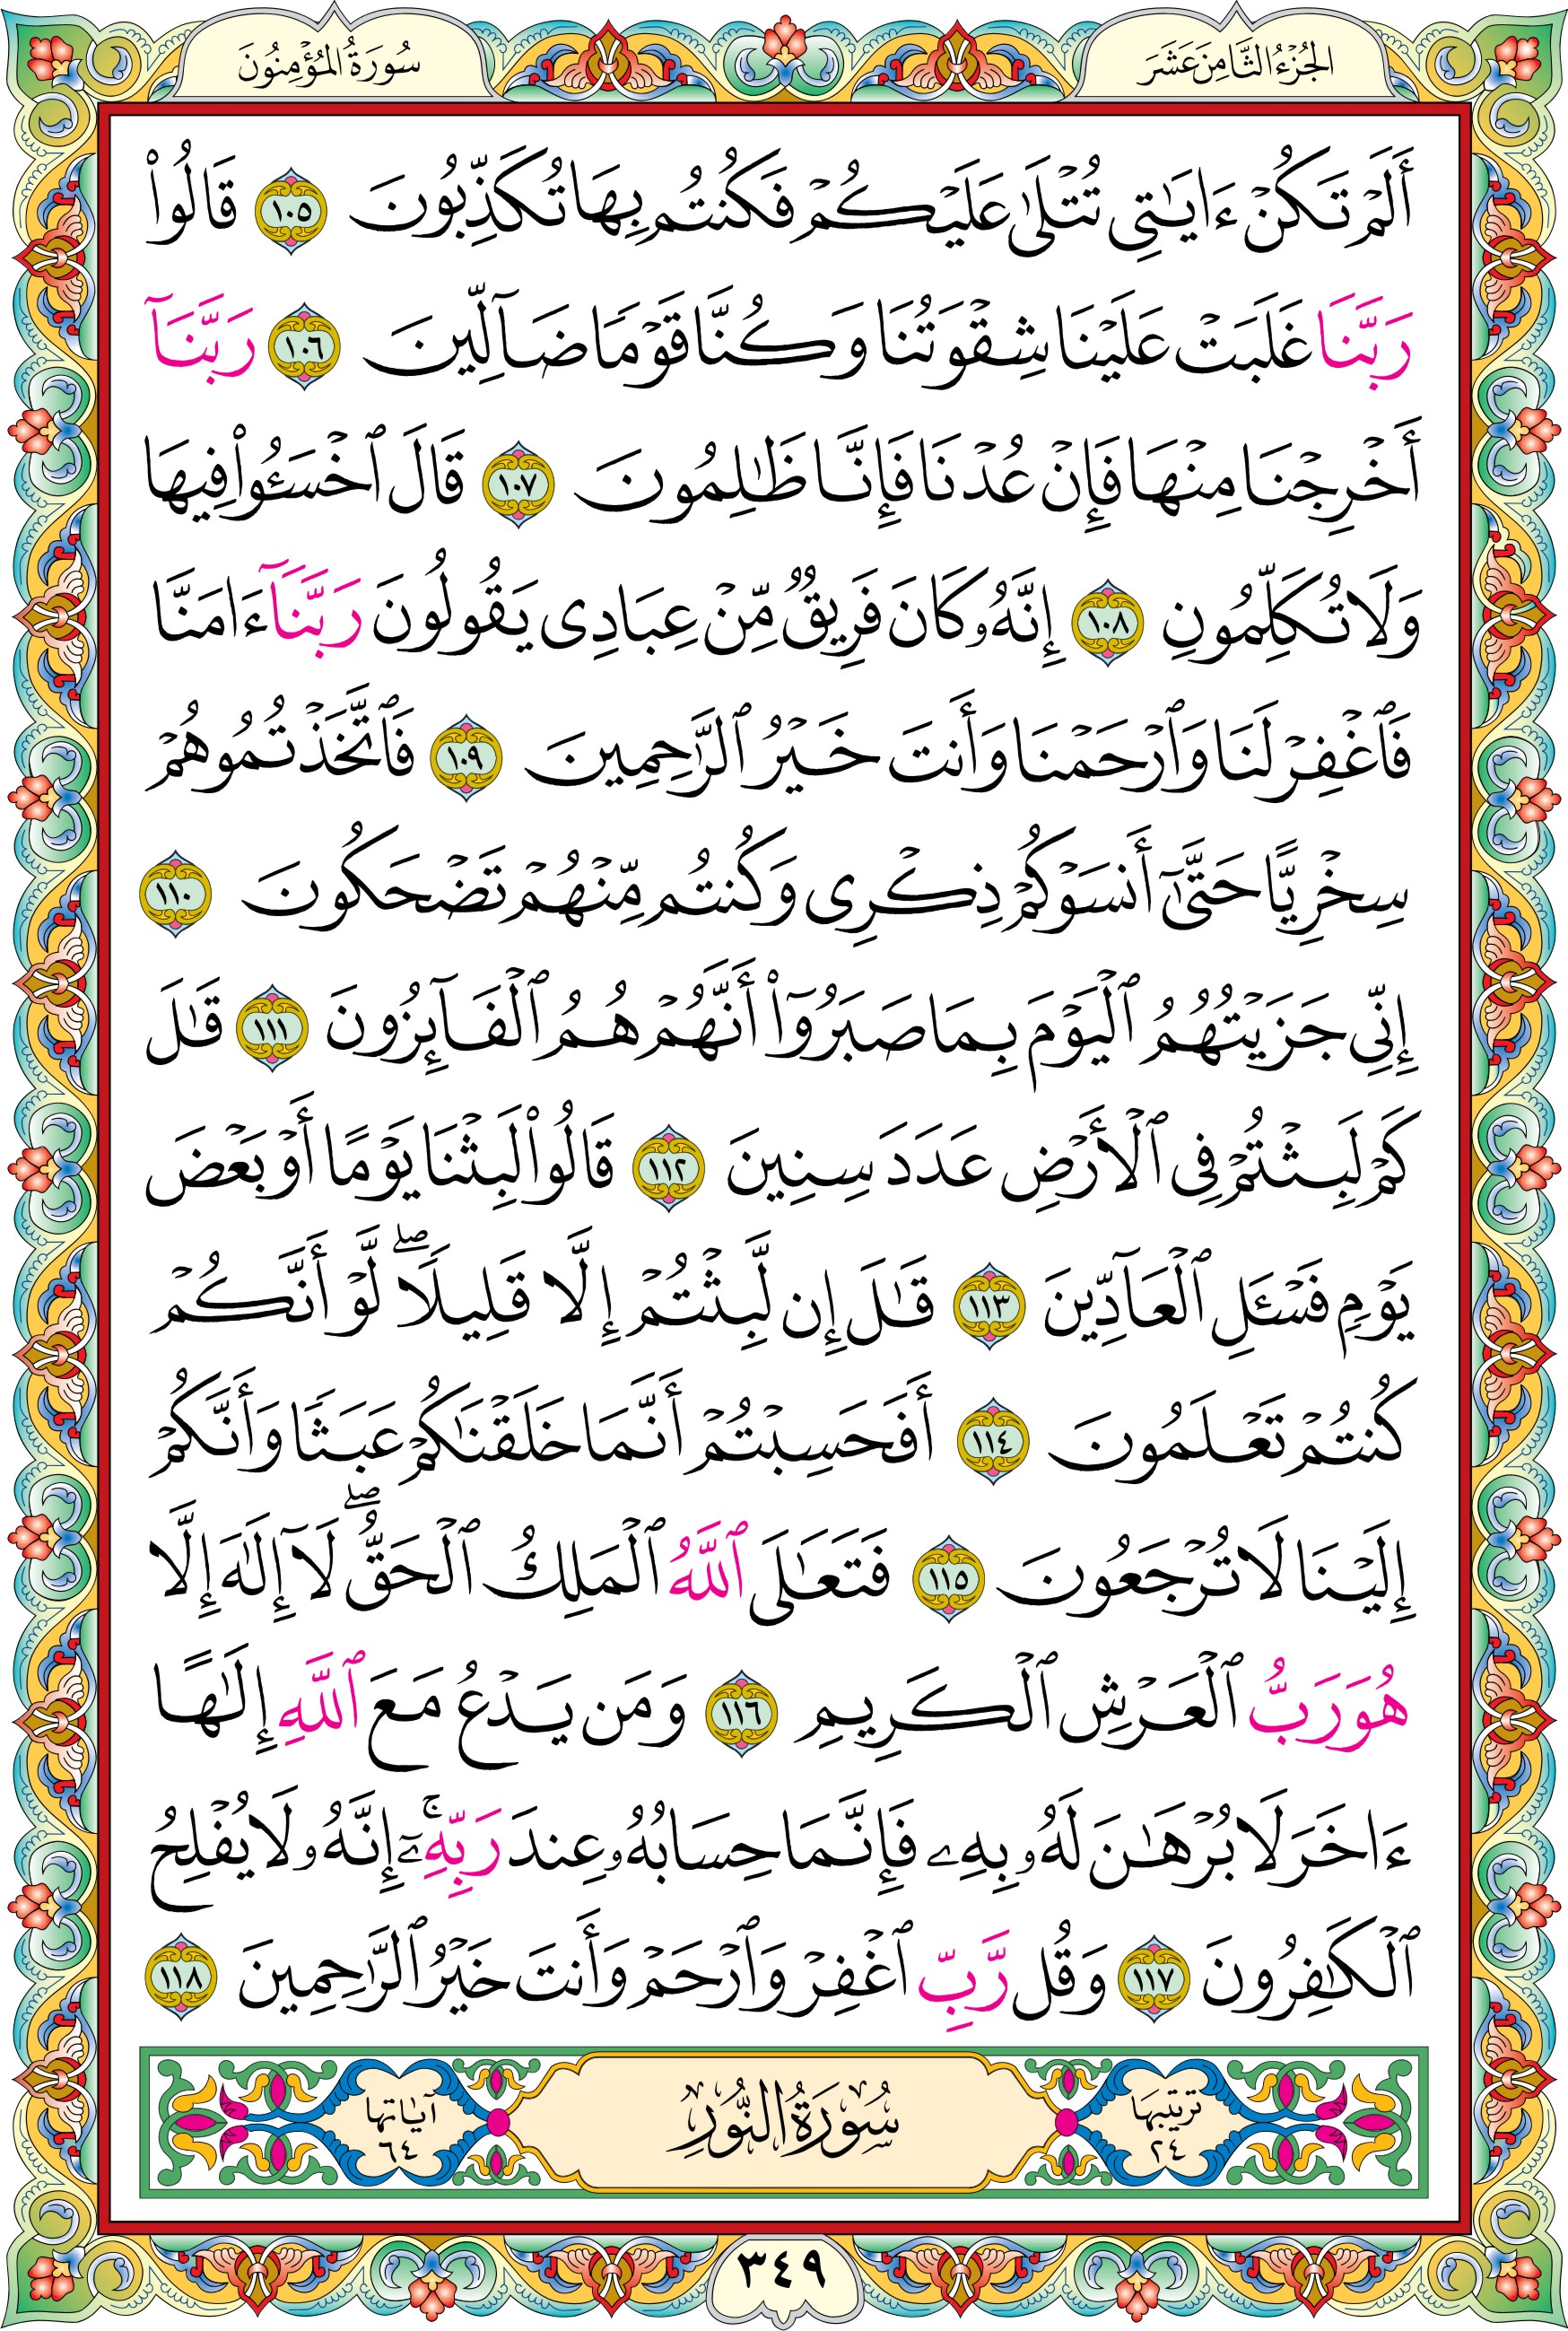 الجُزْءُ الثَّامِنَ عَشَرَ
سُورَةُ المُؤْمِنُونَ
أَلَمْ تَكُنْ ءَايَٰتِى تُتْلَىٰ عَلَيْكُمْ فَكُنتُم بِهَا تُكَذِّبُونَ ١٠٥ قَالُوا۟
رَبَّنَا غَلَبَتْ عَلَيْنَا شِقْوَتُنَا وَكُنَّا قَوْمًا ضَآلِّينَ ١٠٦ رَبَّنَآ
أَخْرِجْنَا مِنْهَا فَإِنْ عُدْنَا فَإِنَّا ظَٰلِمُونَ ١٠٧ قَالَ ٱخْسَـُٔوا۟ فِيهَا
وَلَا تُكَلِّمُونِ ١٠٨ إِنَّهُۥ كَانَ فَرِيقٌ مِّنْ عِبَادِى يَقُولُونَ رَبَّنَآ ءَامَنَّا
فَٱغْفِرْ لَنَا وَٱرْحَمْنَا وَأَنتَ خَيْرُ ٱلرَّٰحِمِينَ ١٠٩ فَٱتَّخَذْتُمُوهُمْ
سِخْرِيًّا حَتَّىٰٓ أَنسَوْكُمْ ذِكْرِى وَكُنتُم مِّنْهُمْ تَضْحَكُونَ ١١٠
إِنِّى جَزَيْتُهُمُ ٱلْيَوْمَ بِمَا صَبَرُوٓا۟ أَنَّهُمْ هُمُ ٱلْفَآئِزُونَ ١١١ قَٰلَ
كَمْ لَبِثْتُمْ فِى ٱلْأَرْضِ عَدَدَ سِنِينَ ١١٢ قَالُوا۟ لَبِثْنَا يَوْمًا أَوْ بَعْضَ
يَوْمٍ فَسْـَٔلِ ٱلْعَآدِّينَ ١١٣ قَٰلَ إِن لَّبِثْتُمْ إِلَّا قَلِيلًا ۖ لَّوْ أَنَّكُمْ
كُنتُمْ تَعْلَمُونَ ١١٤ أَفَحَسِبْتُمْ أَنَّمَا خَلَقْنَٰكُمْ عَبَثًا وَأَنَّكُمْ
إِلَيْنَا لَا تُرْجَعُونَ ١١٥ فَتَعَٰلَى ٱللَّهُ ٱلْمَلِكُ ٱلْحَقُّ ۖ لَآ إِلَٰهَ إِلَّا
هُوَ رَبُّ ٱلْعَرْشِ ٱلْكَرِيمِ ١١٦ وَمَن يَدْعُ مَعَ ٱللَّهِ إِلَٰهًا
ءَاخَرَ لَا بُرْهَٰنَ لَهُۥ بِهِۦ فَإِنَّمَا حِسَابُهُۥ عِندَ رَبِّهِۦٓ ۚ إِنَّهُۥ لَا يُفْلِحُ
ٱلْكَٰفِرُونَ ١١٧ وَقُل رَّبِّ ٱغْفِرْ وَٱرْحَمْ وَأَنتَ خَيْرُ ٱلرَّٰحِمِينَ ١١٨
ترتيبها ٢٤
سُورَةُ النُّورِ
آيَاتها ٦٤
٣٤٩